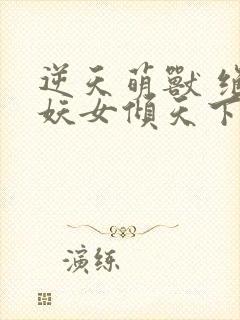 逆天萌獸
妖女傾天下
演练